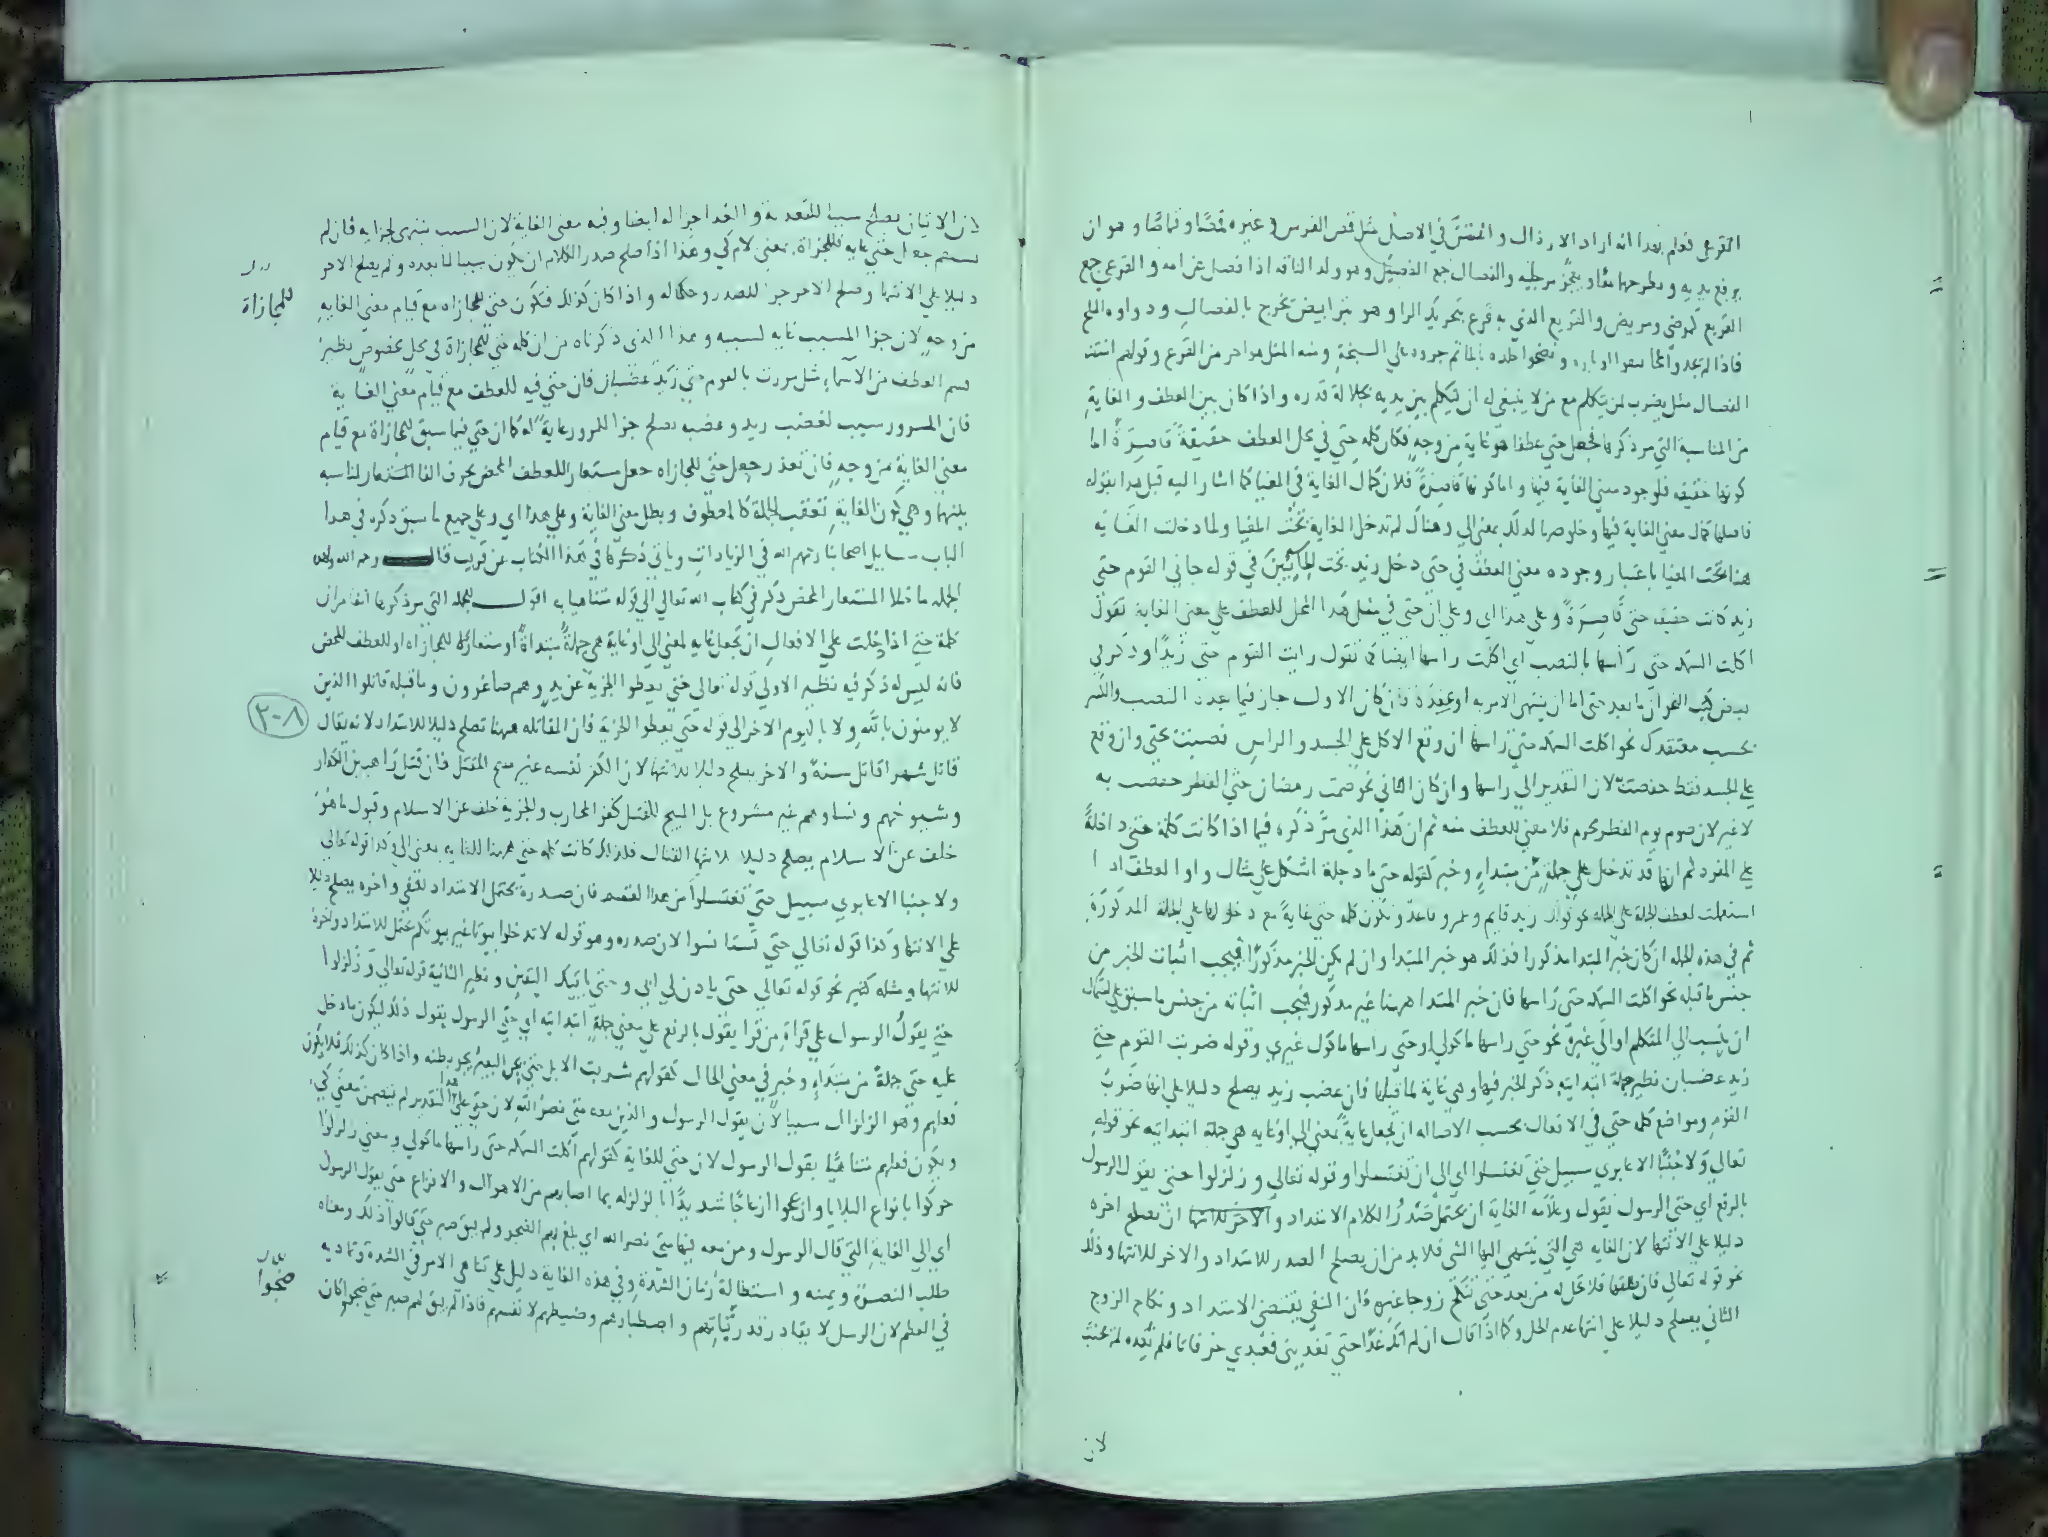 القرعى فعلم بهذا انه اراد الارذال و القمص في الاصل مثل قمص الفرس و غيره قمصًا و قماصًا و هو ان
يرفع يديه و يطرحهما معًا و يعجز برجليه والفصال جمع الفصيل و هو ولد الناقه اذا فصل عن امه و القرعى جمع
القريع كمرضى و مريض والقريع الذي به قرع بتحريك الرا و هو بثر ابيض يخرج بالفصال و دواوه الملح
فاذا لم يجدوا ملحا و نضحوا جلده بالماء ثم جروه على السبخة و منه المثل هو احر من القرع و قولهم استنت
الفصال مثل يضرب لمن يتكلم مع من لا ينبغي له ان يتكلم بين يديه لجلالة قدره و اذا كان بين العطف و الغاية
من المناسبة التي مر ذكرها فجعل حتى عطفا هو غاية من وجه فكان كلمة حتى في محل العطف حقيقةً قاصرةً اما
كونها حقيقه فلوجود معنى الغاية فيها و اما كونها قاصرةً فلان كمال الغاية في المغيا كما اشار اليه قبل هذا بقوله
فاصلها كمال معنى الغاية فيها و خلوصها لذلك بمعنى الى و هناك لم تدخل الغاية تحت المغيا و لما دخلت الغايه
هنا تحت المغيا باعتبار وجوده معنى العطف في حتى دخل زيد تحت الجائين في قوله جاني القوم حتى
زيد كانت حقيقه حتى قاصرةً و على هذا اى و على ان حتى في مثل هذا المحل للعطف على معنى الغاية نقول
اكلت السمكه حتى رأسها بالنصب اى اكلت راسها ايضا نقول رايت القوم حتى زيدًا و ذكر في
بعض كتب النحو ان ما بعد حتى اما ان ينتهى الامر به او عنده فان كان الاول جاز فيما بعده النصب والجر
بحسب معتقدك نحو اكلت السمكه حتى راسها ان وقع الاكل على الجسد و الراس نصبت بحتى وان وقع
على الجسد فقط خفضت لان التقدير الى راسها و ان كان الثاني نحو صمت رمضان حتى الفطر خفضت به
لا غير لان صوم يوم الفطر محرم فلا معنى للعطف منه ثم ان هذا الذي مر ذكره فيما اذا كانت كلمة حتى داخلةً
على المفرد ثم انها قد تدخل على جملةٍ من مبتداءٍ و خبر كقوله حتى ما دجلة اشكل على مثال واو العطف اذا
استعملت لعطف الجملة على الجمله نحو قولك زيد قايم و عمرو قاعد و تكون كلمه حتى غايةً مع دخولها على الجملة المذكورة
ثم في هذه الجمله ان كان خبر المبتدا مذكورا فذلك هو خبر المبتدا و ان لم يكن الخبر مذكورًا فيجب اثبات الخبر من
جنس ما قبله نحو اكلت السمكه حتى راسها فان خبر المبتدا ههنا غير مذكور فيجب اثباته من جنس ما سبق على احتمال
ان ينسب الى المتكلم او الى غيره نحو حتى راسها ماكولي او حتى راسها ماكول غيرى و قوله ضربت القوم حتى
زيد غضبان نظير جملة ابتدائيه ذكر الخبر فيها و هى غاية لما قبلها فان غضب زيد يصلح دليلا على انتها ضرب
القوم و مواضع كلمه حتى في الافعال بحسب الاصاله ان تجعل غايةً بمعنى الى او غايه هي جملة ابتدائيه نحو قوله
تعالى و لا جنبًا الا عابرى سبيل حتى تغتسلوا اى الى ان تغتسلوا و قوله تعالى و زلزلوا حتى يقول الرسول
بالرفع اى حتى الرسول يقول و علامه الغاية ان يحتمل صدرُ الكلام الامتداد و الاخر للانتها ان يصلح اخره
دليلا على الانتها لان الغايه هي التي ينتهى اليها الشى فلا بد من ان يصلح الصدر للامتداد و الاخر للانتها و ذلك
نحو قوله تعالى فان طلقها فلا تحل له من بعد حتى تنكح زوجا غيره فان النفى يقتضى الامتداد و نكاح الزوج
الثاني يصلح دليلا على انتها عدم الحل و كما اذا قال ان لم آتك غدًا حتى تغديني فعبدي حر فاتاه فلم يغده لم يحنث
لان
لان الاتيان يصلح سببا للتغديه و الغدا جزا له ايضا و فيه معنى الغاية لان السبب ينتهى بجزايه فان لم
يستقم جعل حتى غايه فللمجازاة بمعنى لام كى و هذا اذا صلح صدر الكلام ان يكون سببا لما بعده و لم يصلح الاخر
دليلا على الانتها و صلح الاخر جزا للصدر و حكما له و اذا كان كذلك فتكون حتى للمجازاه مع قيام معنى الغاية
للمجازاة
من وجه لان جزا المسبب غايه لسببه و هذا الذى ذكرناه من ان كلمه حتى للمجازاة في محل مخصوص نظير
قسم العطف من الاسماء مثل مررت بالقوم حتى زيد غضبان فان حتى فيه للعطف مع قيام معنى الغاية
فان المرور سبب لغضب زيد و غضبه يصلح جزا للمرور غايةً له كان حتى فيما سبق للمجازاة مع قيام
معنى الغاية من وجه فان تعذر جعل حتى للمجازاه جعل مستعارا للعطف المحض بحرف الفا المستعار لمناسبه
بينهما و هي كون الغاية تعقب الجملة كالمعطوف و بطل معنى الغاية و على هذا اى و على جميع ما سبق ذكره في هذا
الباب مسايل اصحابنا رحمهم الله في الزيادات و ياتي ذكرها في هذا الكتاب عن قريب قال رحمه الله و لهذه
الجمله ما خلا المستعار المحض ذكر في كتاب الله تعالى الى قوله متناهيا به اقول الجمله التي مر ذكرها انفا من ان
كلمة حتى اذا دخلت على الافعال ان تجعل غايه بمعنى الى او غاية هى جملةٌ مبتداةٌ او مستعارة للمجازاه او للعطف المحض
فانه ليس له ذكر فيه نظير الاولى قوله تعالى حتى يعطوا الجزية عن يد و هم صاغرون و ما قبله قاتلوا الذين
٣٠٨
لا يومنون بالله و لا باليوم الاخر الى قوله حتى يعطوا الجزية فان المقاتله ههنا تصلح دليلا للامتداد لانه يقال
قاتل شهرا قاتل سنةً و الاخر يصلح دليلا للانتها لان الكفر نفسه غير مبيح للقتل فان قتل راهبين الكفار
و شيوخهم و نساوهم غير مشروع بل المبيح للقتل كفر المحارب و الجزية خلف عن الاسلام و قبول ما هو
خلف عن الاسلام يصلح دليلا لانتها القتال فلذلك كانت كلمه حتى ههنا للغايه بمعنى الى و كذا قوله تعالى
ولا جنبا الا عابرى سبيل حتى تغتسلوا من هذا القسم فان صدره يحتمل الامتداد للنفى و اخره يصلح دليلا
على الانتها و كذا قوله تعالى حتى تستانسوا لان صدره و هو قوله لا تدخلوا بيوتا غير بيوتكم محتمل للامتداد و اخره
للانتها و مثله كثير نحو قوله تعالى حتى ياذن لي ابى و حتى ياتيك اليقين و نظير الثانية قوله تعالى و زلزلوا
حتى يقولُ الرسول على قراة من قرا يقول بالرفع على معنى جملةٍ ابتدائيه اى حتى الرسول يقول ذلك ليكون ما دخل
عليه حتى جملةً من مبتداءٍ و خبر في معنى الحال كقولهم شربت الابل حتى يجى البعير يجر بطنه و اذا كان كذلك فلا يكون
فعلهم و هو الزلزال سببا لان يقول الرسول و الذين معه متى نصر الله لان حتى على هذا التقدير لم يتضمن معنى كى
و يكون فعلهم متناهيًا بقول الرسول لان حتى للغاية كقولهم اكلت السمكه حتى راسها ماكولي و معنى زلزلوا
حركوا بانواع البلايا و ازعجوا ازعاجًا شديدًا بالزلزله بما اصابهم من الاهوال و الافزاع حتى يقول الرسول
اى الى الغاية التي قال الرسول و من معه فيها متى نصر الله اى بلغ بهم الضجر و لم يبق صبر حتى قالوا ذلك و معناه
ضجوا
طلب النصرة و تمنيه و استطالة زمان الشدة و في هذه الغاية دليل على تناهى الامر في الشدة و تماديه
في العظم لان الرسل لا يقادر قدر ثباتهم و اصطبارهم و ضبطهم لانفسهم فاذا لم يبق لهم صبر حتى ضجوا كان